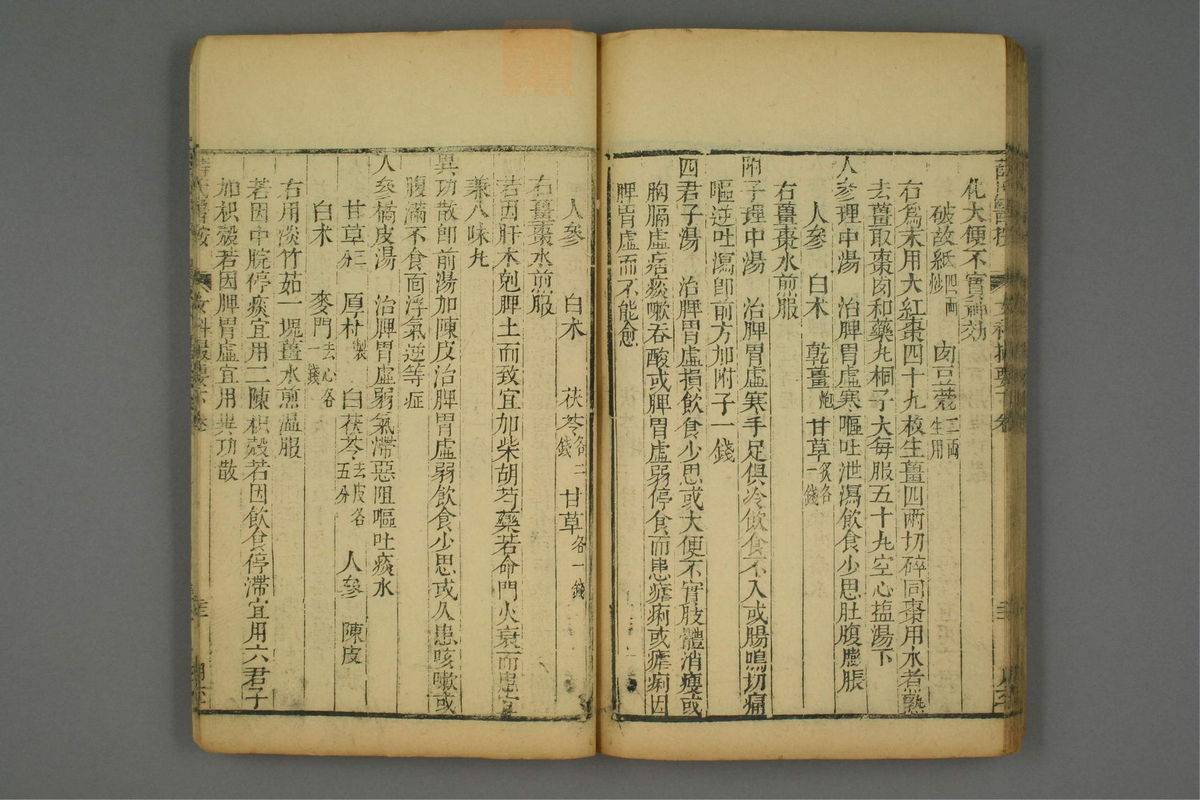 化大便不實神效
破故紙四兩炒 肉豆蔻二兩生用
右爲末用大紅棗四十九枚生薑四兩切碎同棗用水煮熟
去薑取棗肉和藥丸桐子大每服五十丸空心塩湯下
人參理中湯 治脾胃虛寒嘔吐泄瀉飲食少思肚腹膨脹
人參 白朮 乾薑炮 甘草炙各一錢
右薑棗水煎服
附子理中湯 治脾胃虛寒手足俱冷飲食不入或腸鳴切痛
嘔逆吐瀉即前方加附子一錢
四君子湯 治脾胃虛損飲食少思或大便不實肢體消瘦或
胸膈虛痞痰嗽吞酸或脾胃虛弱停食而患瘧痢或瘧痢因
脾胃虛而不能愈
人參 白朮 茯苓各二錢 甘草各一錢
右薑棗水煎服
若因肝木剋脾土而致宜加柴胡芍藥若命門火衰而患宜
兼八味丸
異功散即前湯加陳皮治脾胃虛弱飲食少思或久患咳嗽或
腹滿不食面浮氣逆等症
人參橘皮湯 治脾胃虛弱氣滯惡阻嘔吐痰水
甘草三分 厚朴製 白茯苓去皮各五分 人參 陳皮
白朮 麥門去心各一錢
右用淡竹茹一塊薑水煎溫服
若因中脘停痰宜用二陳枳殼若因飲食停滯宜用六君子
加枳殼若因脾胃虛宜用異功散